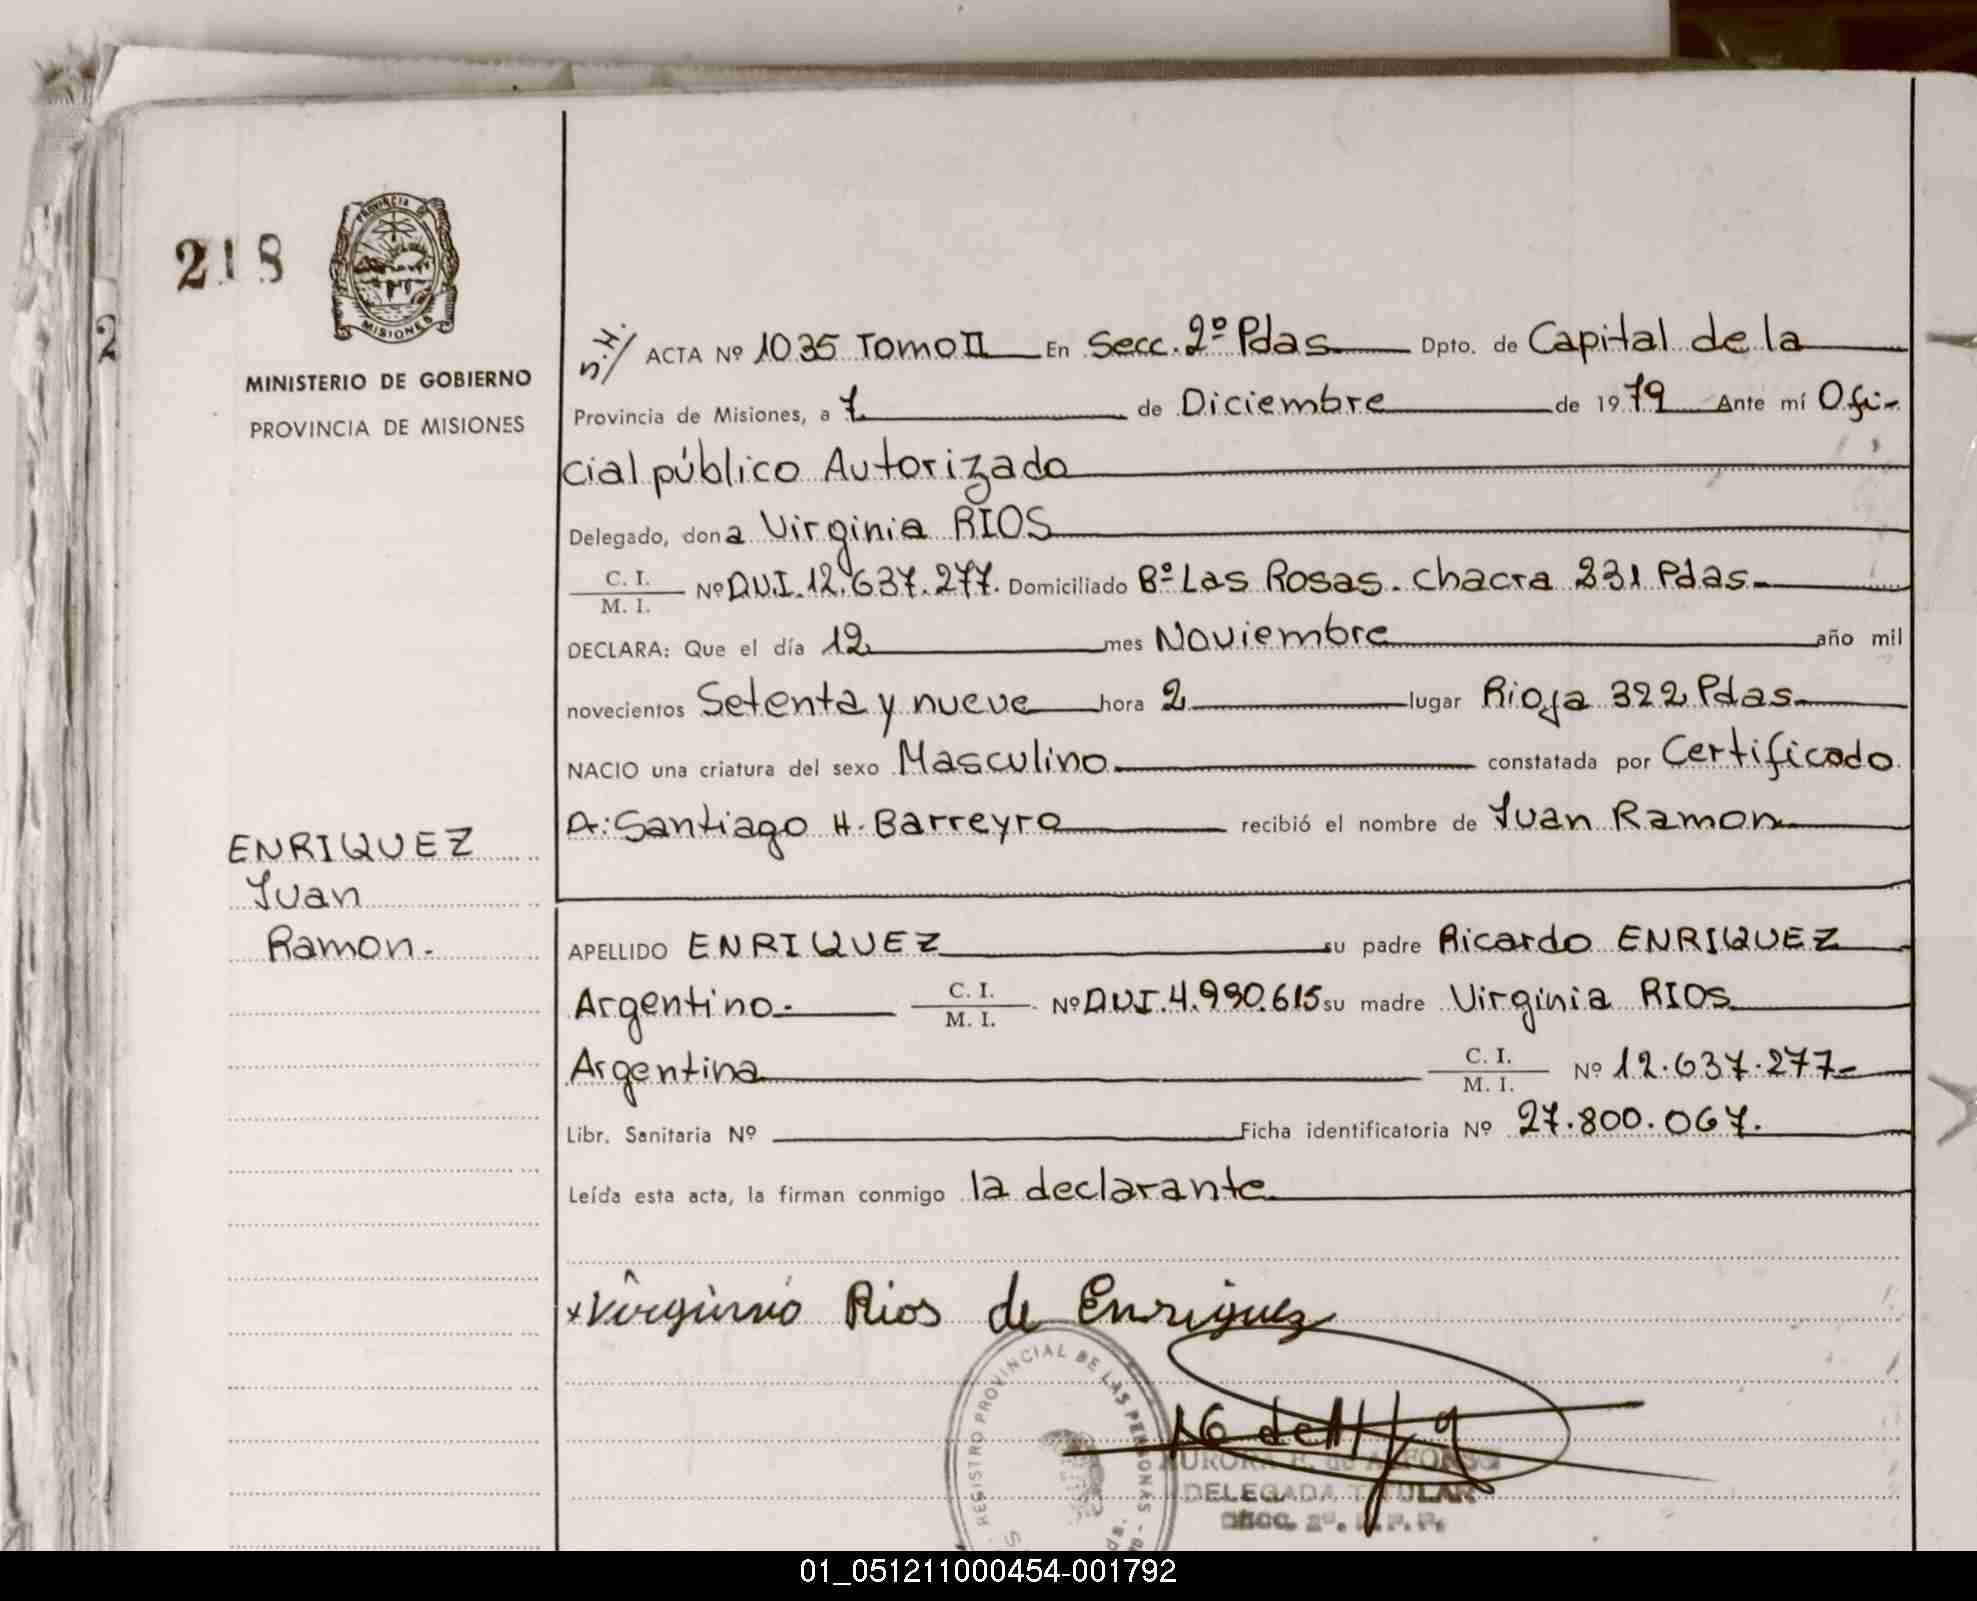 218
PROVINCIA DE
MISIONES
MINISTERIO DE GOBIERNO
PROVINCIA DE MISIONES
ENRIQUEZ
Juan
Ramon.-
S.H./ ACTA Nº 1035 Tomo II En Secc. 2º Pdas Dpto. de Capital de la
Provincia de Misiones, a 7 de Diciembre de 1979 Ante mí Ofi-
cial público Autorizado
Delegado, dona Virginia RIOS
C. I.
M. I. Nº D.U.I. 12.637.277. Domiciliado Bº Las Rosas. chacra 231 Pdas.
DECLARA: Que el día 12 mes Noviembre año mil
novecientos Setenta y nueve hora 2 lugar Rioja 322 Pdas.
NACIO una criatura del sexo Masculino constatada por Certificado
A: Santiago H. Barreyro recibió el nombre de Juan Ramon
APELLIDO ENRIQUEZ su padre Ricardo ENRIQUEZ
Argentino.- C. I.
M. I. Nº D.U.I. 4.990.615 su madre Virginia RIOS
Argentina C. I.
M. I. Nº 12.637.277-
Libr. Sanitaria Nº Ficha identificatoria Nº 27.800.067.
Leída esta acta, la firman conmigo la declarante
Rios de Enriquez
REGISTRO PROVINCIAL DE LAS PERSONAS
AURORA de ALFONSO
DELEGADA TITULAR
SECC. 2º. R.P.P.
01_051211000454-001792